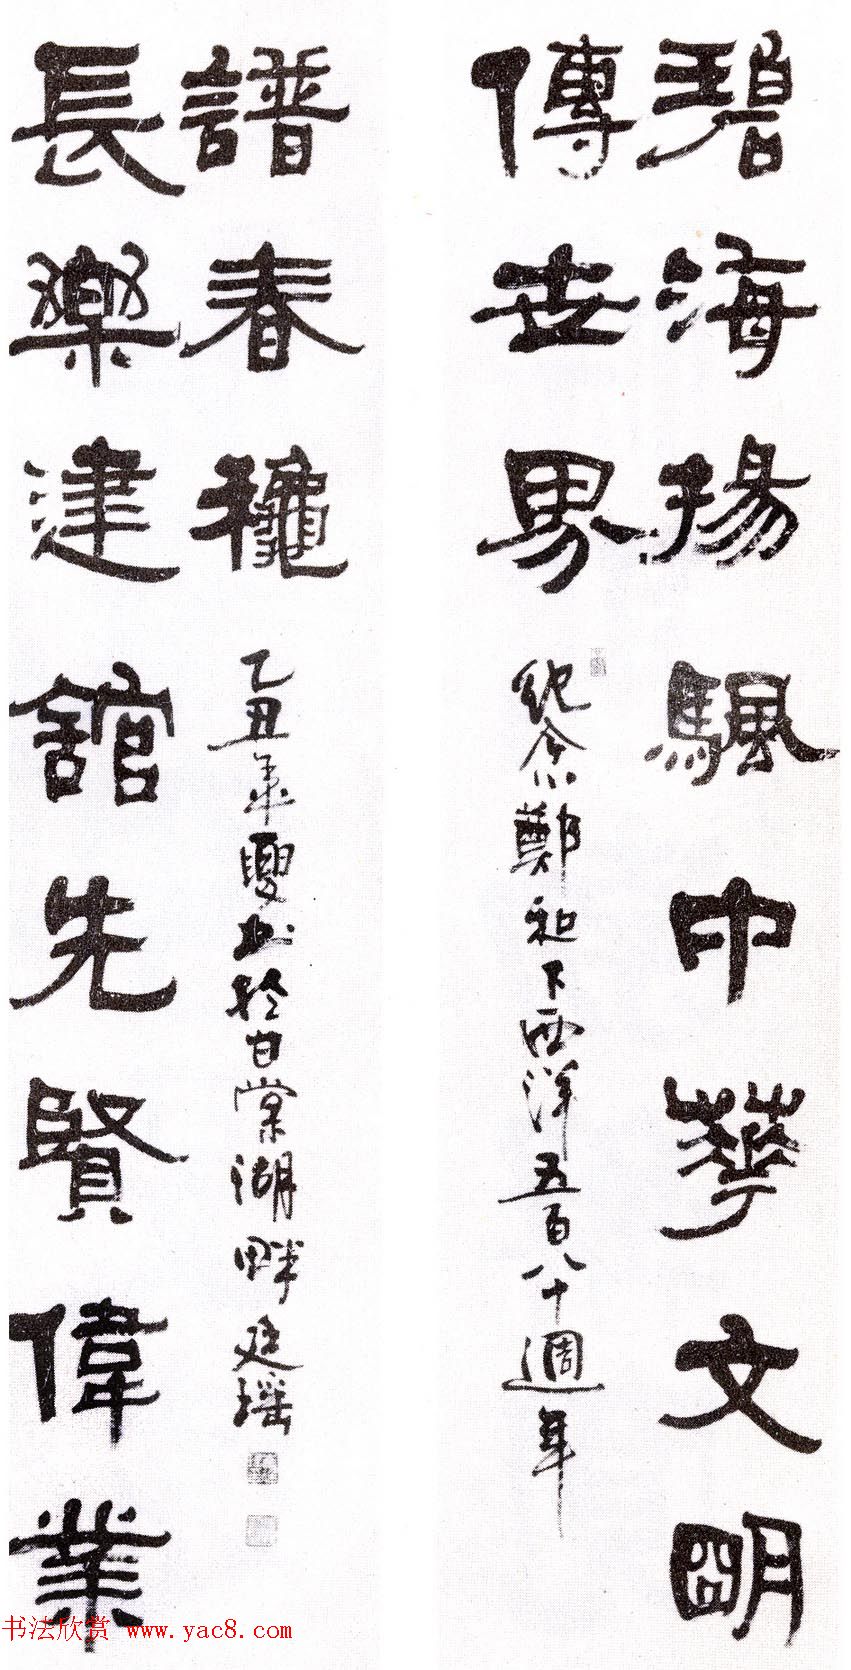 碧海揚颿中華文明
傳世界
紀念鄭和下西洋五百八十週年
長樂建館先賢偉業
譜春穐
乙丑年夏書於甘棠湖畔廷瑤
书法欣赏 www.yac8.com